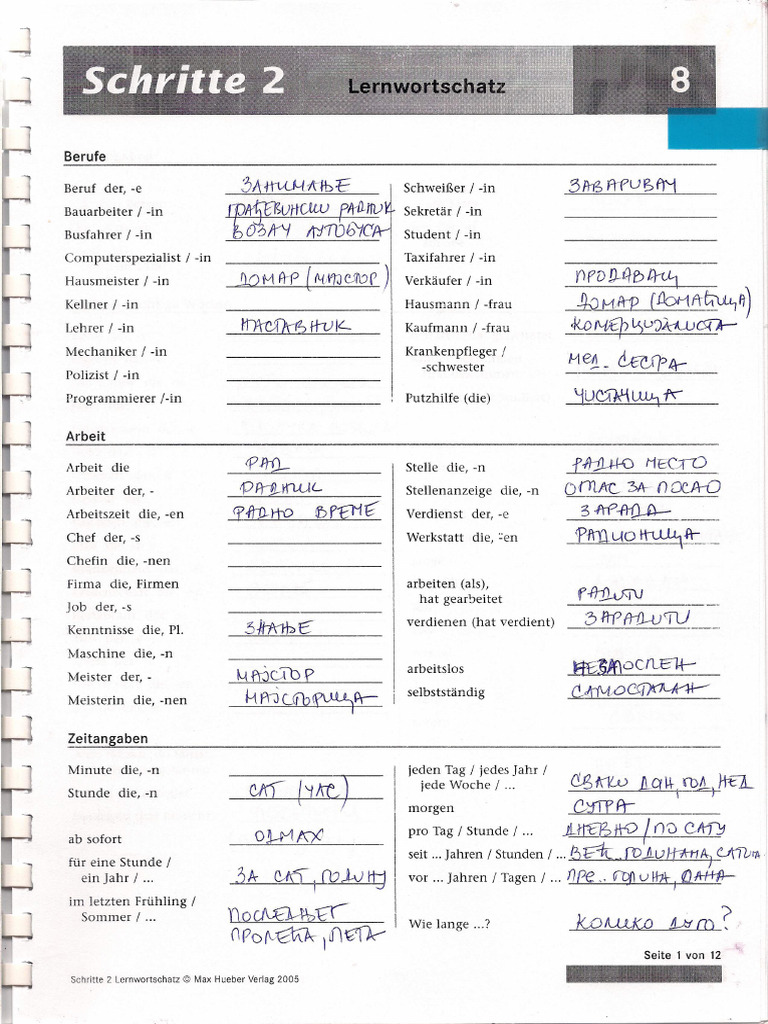 Schritte 2 Lernwortschatz 8
Berufe
Beruf der, -e ЗАНИМАЊЕ
Bauarbeiter / -in ГРАЂЕВИНСКИ РАДНИК
Busfahrer / -in ВОЗАЧ АУТОБУСА
Computerspezialist / -in
Hausmeister / -in ДОМАР (МАЈСТОР)
Kellner / -in
Lehrer / -in НАСТАВНИК
Mechaniker / -in
Polizist / -in
Programmierer /-in
Schweißer / -in ЗАВАРИВАЧ
Sekretär / -in
Student / -in
Taxifahrer / -in
Verkäufer / -in ПРОДАВАЦ
Hausmann / -frau ДОМАР (ДОМАЋИЦА)
Kaufmann / -frau КОМЕРЦИЈАЛИСТА
Krankenpfleger /
-schwester МЕД. СЕСТРА
Putzhilfe (die) ЧИСТАЧИЦА
Arbeit
Arbeit die РАД
Arbeiter der, - РАДНИК
Arbeitszeit die, -en РАДНО ВРЕМЕ
Chef der, -s
Chefin die, -nen
Firma die, Firmen
Job der, -s
Kenntnisse die, Pl. ЗНАЊЕ
Maschine die, -n
Meister der, - МАЈСТОР
Meisterin die, -nen МАЈСТОРИЦА
Stelle die, -n РАДНО МЕСТО
Stellenanzeige die, -n ОГЛАС ЗА ПОСАО
Verdienst der, -e ЗАРАДА
Werkstatt die, ¨-en РАДИОНИЦА
arbeiten (als),
hat gearbeitet РАДИТИ
verdienen (hat verdient) ЗАРАДИТИ
arbeitslos НЕЗАПОСЛЕН
selbstständig САМОСТАЛАН
Zeitangaben
Minute die, -n
Stunde die, -n САТ (ЧАС)
ab sofort ОДМАХ
für eine Stunde /
ein Jahr / ... ЗА САТ, ГОДИНУ
im letzten Frühling / ПОСЛЕДЊЕГ
Sommer / ... ПРОЛЕЋА, ЛЕТА
jeden Tag / jedes Jahr /
jede Woche / ... СВАКИ ДАН, ГОД, НЕД
morgen СУТРА
pro Tag / Stunde / ... ДНЕВНО / ПО САТУ
seit ... Jahren / Stunden / ... ВЕЋ .. ГОДИНАМА, САТИМА
vor ... Jahren / Tagen / ... ПРЕ .. ГОДИНА, ДАНА
Wie lange ...? КОЛИКО ДУГО?
Seite 1 von 12
Schritte 2 Lernwortschatz © Max Hueber Verlag 2005